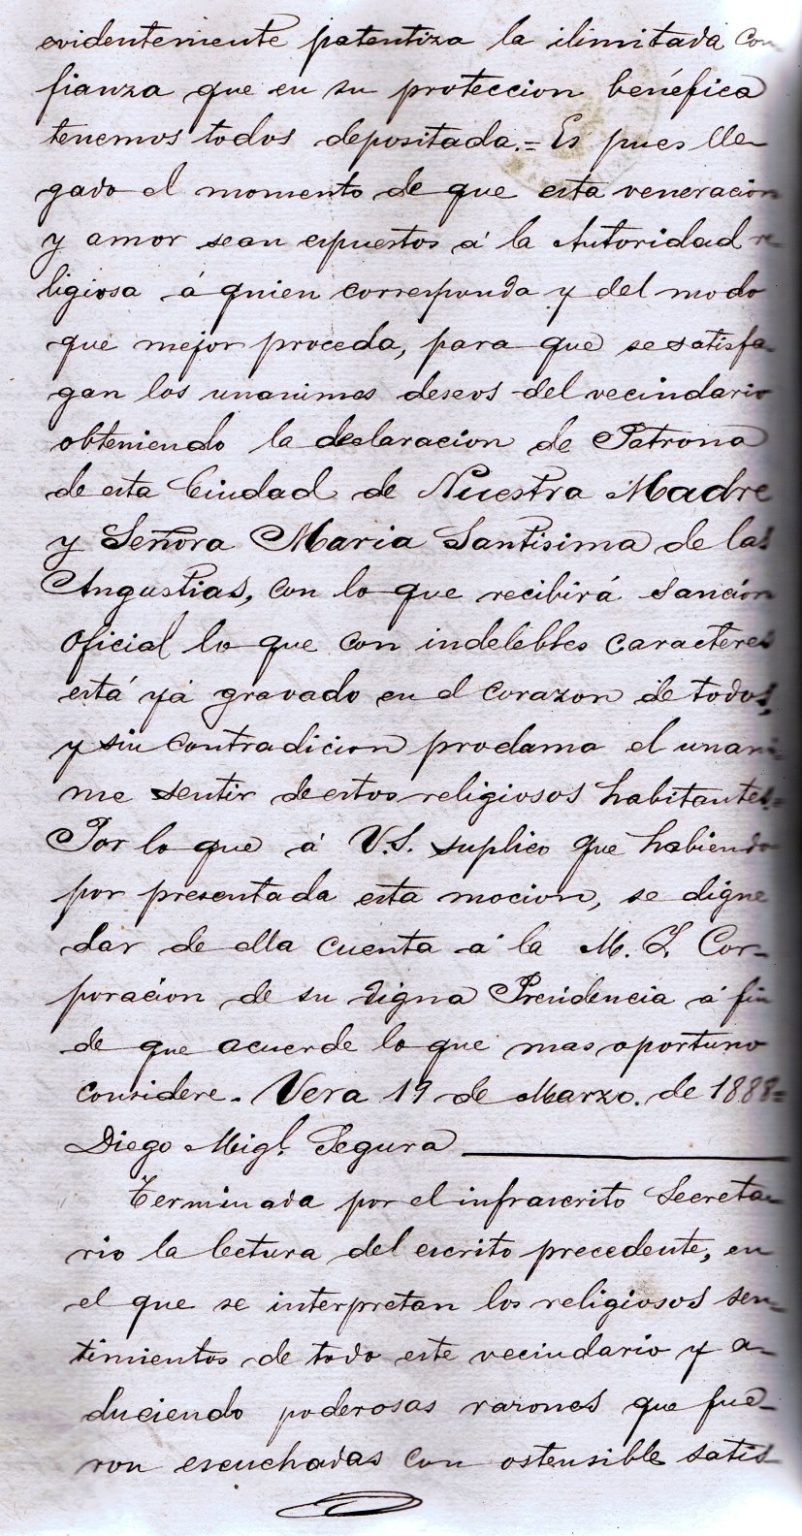 evidentemente patentiza la ilimitada con
fianza que en su proteccion benéfica
tenemos todos depositada.= Es pues lle-
gado el momento de que esta veneracion
y amor sean espuestos á la Autoridad re-
ligiosa á quien corresponda y del modo
que mejor proceda, para que se satisfa-
gan los unanimes deseos del vecindario
obteniendo la declaracion de Patrona
de esta Ciudad de Nuestra Madre
y Señora Maria Santisima de las
Angustias, con lo que recibirá sanción
oficial lo que con indelebles caracteres
está yá gravado en el corazon de todos,
y sin contradicion proclama el unani-
me sentir de estos religiosos habitantes.=
Por lo que á V.S. suplico que habiendo
por presentada esta mocion, se digne
dar de ella cuenta á la M. I. Cor-
poracion de su digna Presidencia á fin
de que acuerde lo que mas oportuno
considere. Vera 19 de Marzo. de 1888=
Diego Migl. Segura
Terminada por el infrascrito Secreta-
rio la lectura del escrito precedente, en
el que se interpretan los religiosos sen-
timientos de todo este vecindario y a-
duciendo poderosas razones que fue-
ron escuchadas con ostensible satis-